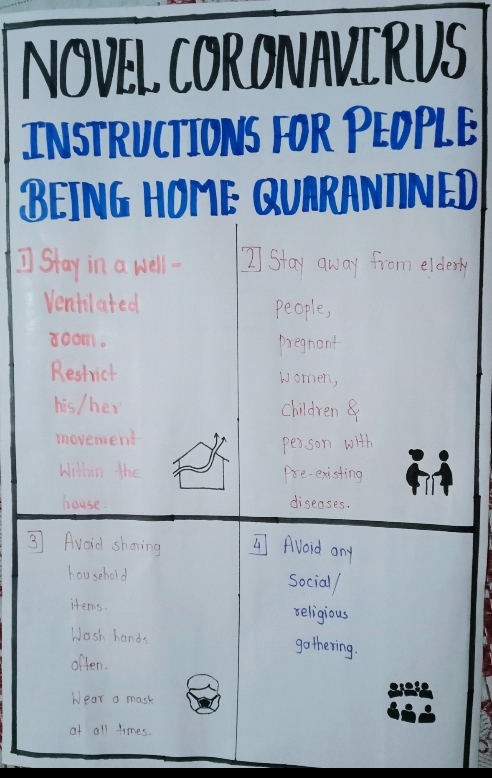 NOVEL CORONAVIRUS
INSTRUCTIONS FOR PEOPLE
BEING HOME QUARANTINED
1 Stay in a well-
Ventilated
room.
Restrict
his/her
movement
Within the
house.
2 Stay away from elderly
people,
pregnant
women,
Children &
person with
Pre-existing
diseases.
3 Avoid sharing
household
items.
Wash hands
often.
Wear a mask
at all times.
4 Avoid any
Social/
religious
gathering.